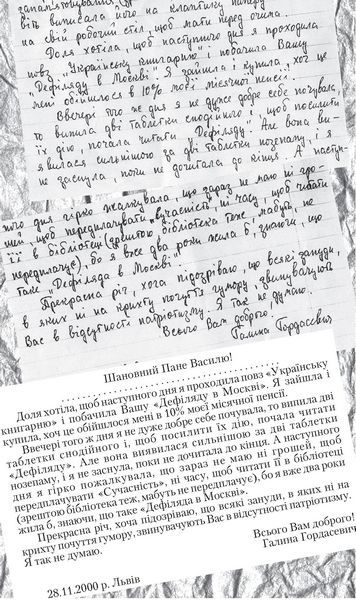 запам'ятовування,
вість виписала його на клаптику паперу
на свій робочий стіл, щоб мати перед очима.
Доля хотіла, щоб наступного дня я проходила
повз „Українську книгарню" і побачила Вашу
„Дефіляду в Москві". Я зайшла і купила, хоч це
мені обійшлося в 10% моєї місячної пенсії.
Ввечері того ж дня я не дуже добре себе почувала,
то випила дві таблетки снодійного і, щоб посилити
їх дію, почала читати „Дефіляду". Але вона ви-
явилася сильнішою за дві таблетки нозепаму, і я
не заснула, поки не дочитала до кінця. А наступ-
ного дня гірко жалкувала, що зараз не маю ні гро-
шей, щоб передплачувати „Сучасність", ні часу, щоб читати
її в бібліотеці (зрештою, бібліотека теж, мабуть, не
передплачує), бо я вже два роки жила б, знаючи, що
таке „Дефіляда в Москві".
Прекрасна річ, хоча підозріваю, що всякі зануди,
в яких ні на крихту почуття гумору, звинувачують
Вас в відсутності патріотизму. Я так не думаю.
Всього Вам доброго!
Галина Гордасевич
Шановний Пане Василю!
Доля хотіла, щоб наступного дня я проходила повз «Українську
книгарню» і побачила Вашу «Дефіляду в Москві». Я зайшла і
купила, хоч це обійшлося мені в 10% моєї місячної пенсії.
Ввечері того ж дня я не дуже добре себе почувала, то випила дві
таблетки снодійного і, щоб посилити їх дію, почала читати
«Дефіляду». Але вона виявилася сильнішою за дві таблетки
нозепаму, і я не заснула, поки не дочитала до кінця. А наступного
дня я гірко пожалкувала, що зараз не маю ні грошей, щоб
передплачувати «Сучасність», ні часу, щоб читати її в бібліотеці
(зрештою бібліотека теж, мабуть, не передплачує), бо я вже два роки
жила б, знаючи, що таке «Дефіляда в Москві».
Прекрасна річ, хоча підозріваю, що всякі зануди, в яких ні на
крихту почуття гумору, звинувачують Вас в відсутності патріотизму.
Я так не думаю.
Всього Вам доброго!
Галина Гордасевич
28.11.2000 р. Львів